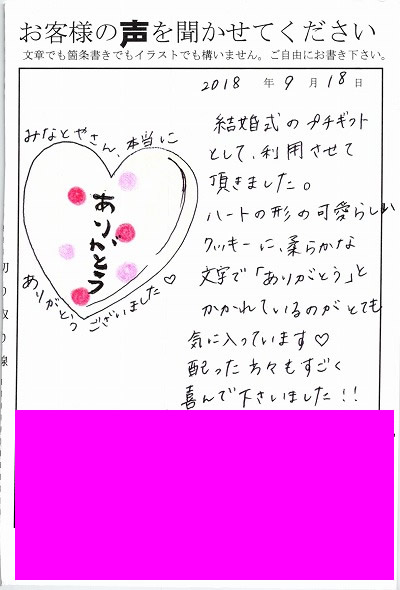 お客様の声を聞かせてください
文章でも箇条書きでもイラストでも構いません。ご自由にお書き下さい。
2018 年 9 月 18 日
みなとやさん、本当に
ありがとう
ありがとう
ございました♡
結婚式のプチギフト
として、利用させて
頂きました。
ハートの形の可愛らしい
クッキーに、柔らかな
文字で「ありがとう」と
かかれているのがとても
気に入っています♡
配った方々もすごく
喜んで下さいました!!
切り取り線